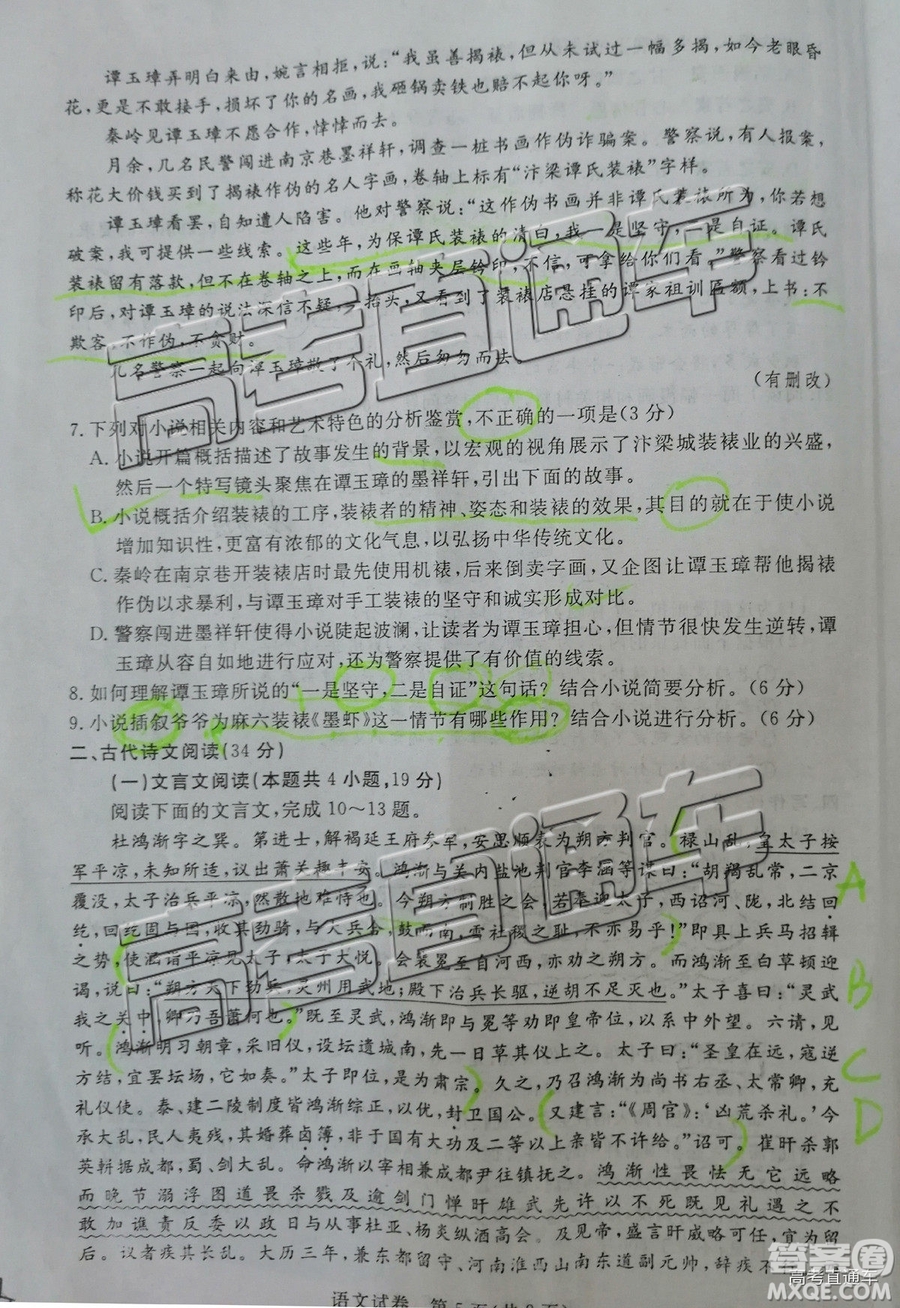 谭玉璋弄明白来由,婉言相拒,说:“我虽善揭裱,但从未试过一幅多揭,如今老眼昏
花,更是不敢接手,损坏了你的名画,我砸锅卖铁也赔不起你呀。”
秦岭见谭玉璋不愿合作,悻悻而去。
月余,几名民警闯进南京巷墨祥轩,调查一桩书画作伪诈骗案。警察说,有人报案,
称花大价钱买到了揭裱作伪的名人字画,卷轴上标有“汴梁谭氏装裱”字样。
谭玉璋看罢,自知遭人陷害。他对警察说:“这作伪书画并非谭氏装裱所为,你若想
破案,我可提供一些线索。这些年,为保谭氏装裱的清白,我一是坚守,二是自证。谭氏
装裱留有落款,但不在卷轴之上,而在画轴夹层钤印,不信,可拿给你们看。”警察看过钤
印后,对谭玉璋的说法深信不疑,一抬头,又看到了装裱店悬挂的谭家祖训匾额,上书:不
欺客,不诈伪,不贪财。
几名警察一起向谭玉璋敬了个礼,然后匆匆而去。
(有删改)
7.下列对小说相关内容和艺术特色的分析鉴赏,不正确的一项是(3分)
A.小说开篇概括描述了故事发生的背景,以宏观的视角展示了汴梁城装裱业的兴盛,
然后一个特写镜头聚焦在谭玉璋的墨祥轩,引出下面的故事。
B.小说概括介绍装裱的工序,装裱者的精神、姿态和装裱的效果,其目的就在于使小说
增加知识性,更富有浓郁的文化气息,以弘扬中华传统文化。
C.秦岭在南京巷开装裱店时最先使用机裱,后来倒卖字画,又企图让谭玉璋帮他装裱
作伪以求暴利,与谭玉璋对手工装裱的坚守和诚实形成对比。
D.警察闯进墨祥轩使得小说陡起波澜,让读者为谭玉璋担心,但情节很快发生逆转,谭
玉璋从容自如地进行应对,还为警察提供了有价值的线索。
8.如何理解谭玉璋所说的“一是坚守,二是自证”这句话?结合小说简要分析。(6分)
9.小说插叙爷爷为麻六装裱《墨虾》这一情节有哪些作用?结合小说进行分析。(6分)
二、古代诗文阅读(34分)
(一)文言文阅读(本题共4小题,19分)
阅读下面的文言文,完成10~13题。
杜鸿渐字之巽。第进士,解褐延王府参军,安思顺表为朔方判官。禄山乱,皇太子按
军平凉,未知所适,议出萧关趣丰安。鸿渐与关内盐池判官李涵等谋曰:“胡羯乱常,二京
覆没,太子治兵平凉,然散地难恃也。今朔方制胜之会,若奉迎太子,西诏河、陇,北结回
纥,回纥固与国,收其劲骑,与大兵合,鼓而南,雪社稷之耻,不亦易乎!”即具上兵马招辑
之势,使涵诣平凉见太子,太子大悦。会裴冕至自河西,亦劝之朔方。而鸿渐至白草顿迎
谒,说曰:“朔方天下劲兵,灵州用武地;殿下治兵长驱,逆胡不足灭也。”太子喜曰:“灵武
我之关中,卿乃吾萧何也。”既至灵武,鸿渐即与冕等劝即皇帝位,以系中外望。六请,见
听。鸿渐明习朝章,采旧仪,设坛遗城南,先一日草其仪上之。太子曰:“圣皇在远,寇逆
方结,宜罢坛场,它如奏。”太子即位,是为肃宗。久之,乃召鸿渐为尚书右丞、太常卿,充
礼仪使。泰、建二陵制度皆鸿渐综正,以优,封卫国公。又建言:“《周官》:‘凶荒杀礼。’今
承大乱,民人夷残,其婚葬卤簿,非于国有大功及二等以上亲皆不许给。”诏可。崔旰杀郭
英斡据成都,蜀、剑大乱。命鸿渐以宰相兼成都尹往镇抚之。鸿渐性畏怯无它远略
而晚节溺浮图道畏杀戮及逾剑门惮旰雄武先许以不死既见礼遇之不
敢加谯责反委以政日与从事杜亚、杨炎纵酒高会。及见帝,盛言旰威略可任,宜为留
后。议者疾其长乱。大历三年,兼东都留守、河南淮西山南东道副元帅,辞疾不行。
语文试卷 第5页(共8页)
高考直通车
高考直通车
A
B
C
D
答案圈
高考直通车